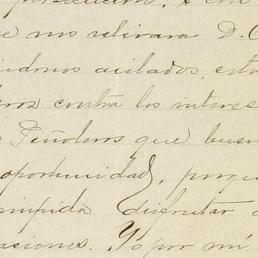 se nos retirara D. C
aislados, esta
contra los interes
Peñoleros que busc
oportunidad, porqu
impida disfrutar d
asiones. Yo por mi